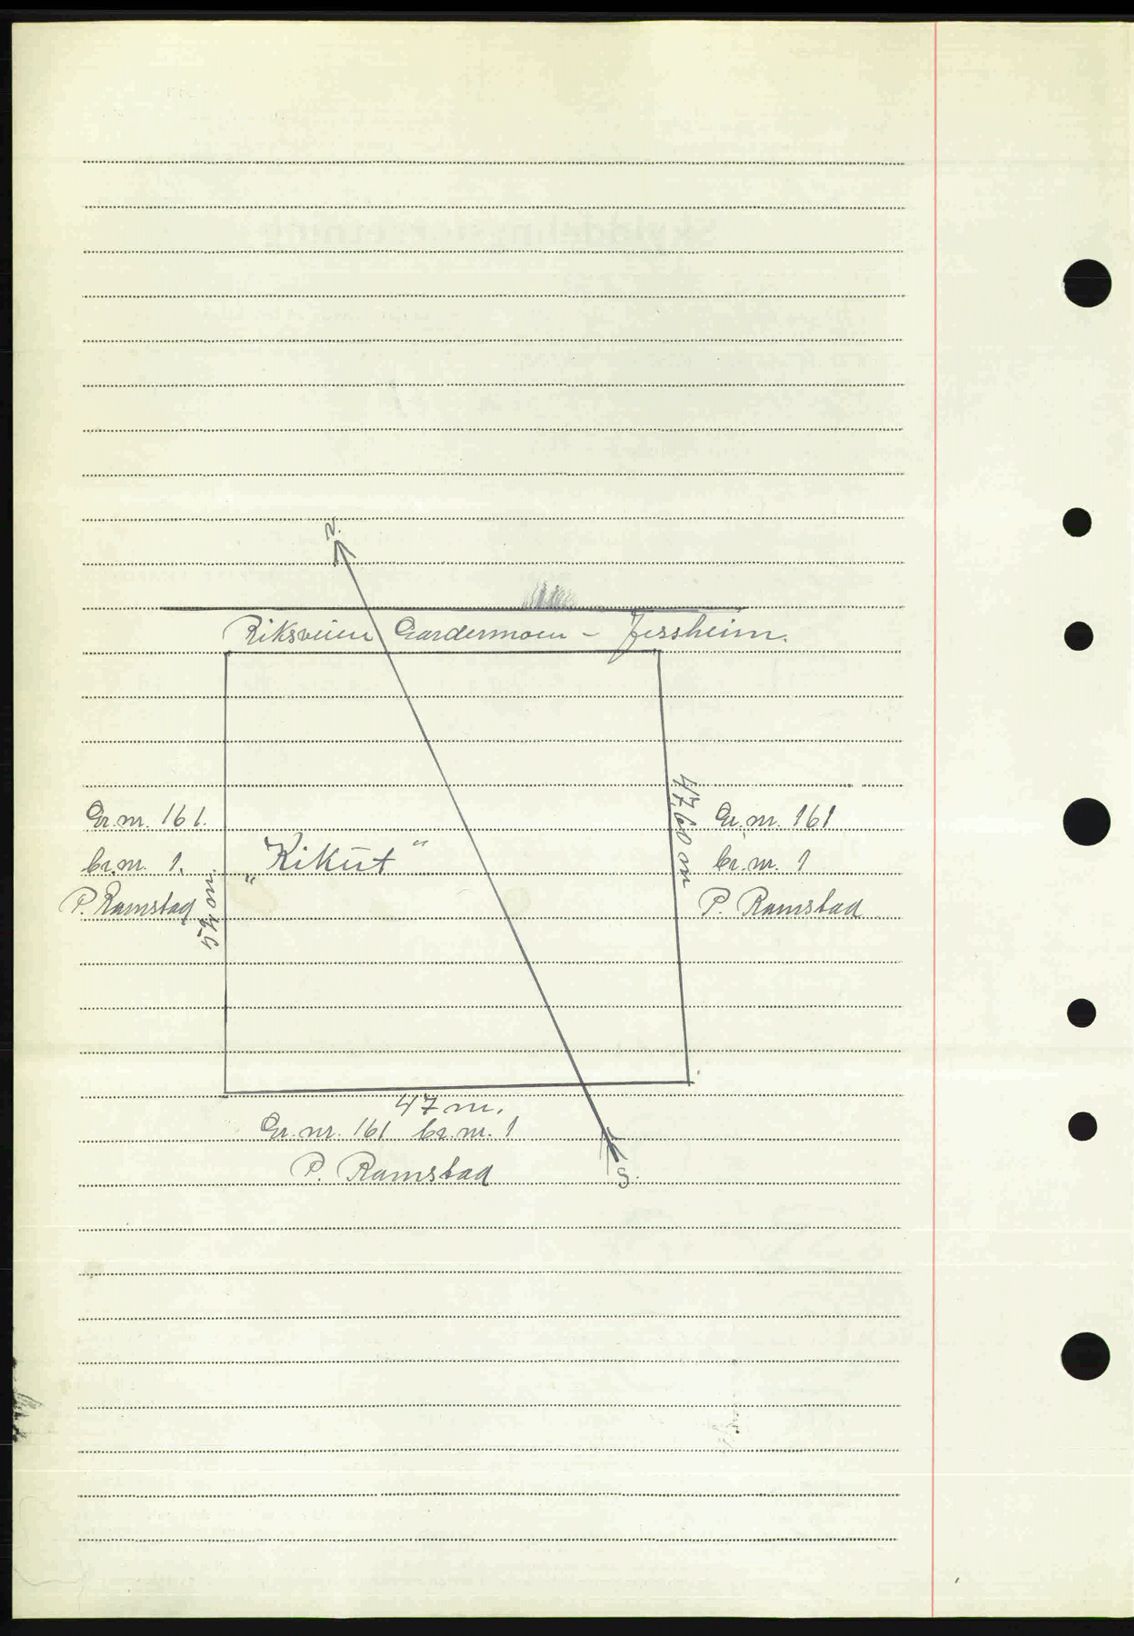 N.
Riksveien Gardermoen - Jessheim.
47,60 m
Gr. nr. 161.
br. nr. 1.
P. Ramstad
Gr. nr. 161
br. nr. 1
P. Ramstad
„Kikut"
m.
47 m.
Gr. nr. 161 br. nr. 1
P. Ramstad
S.